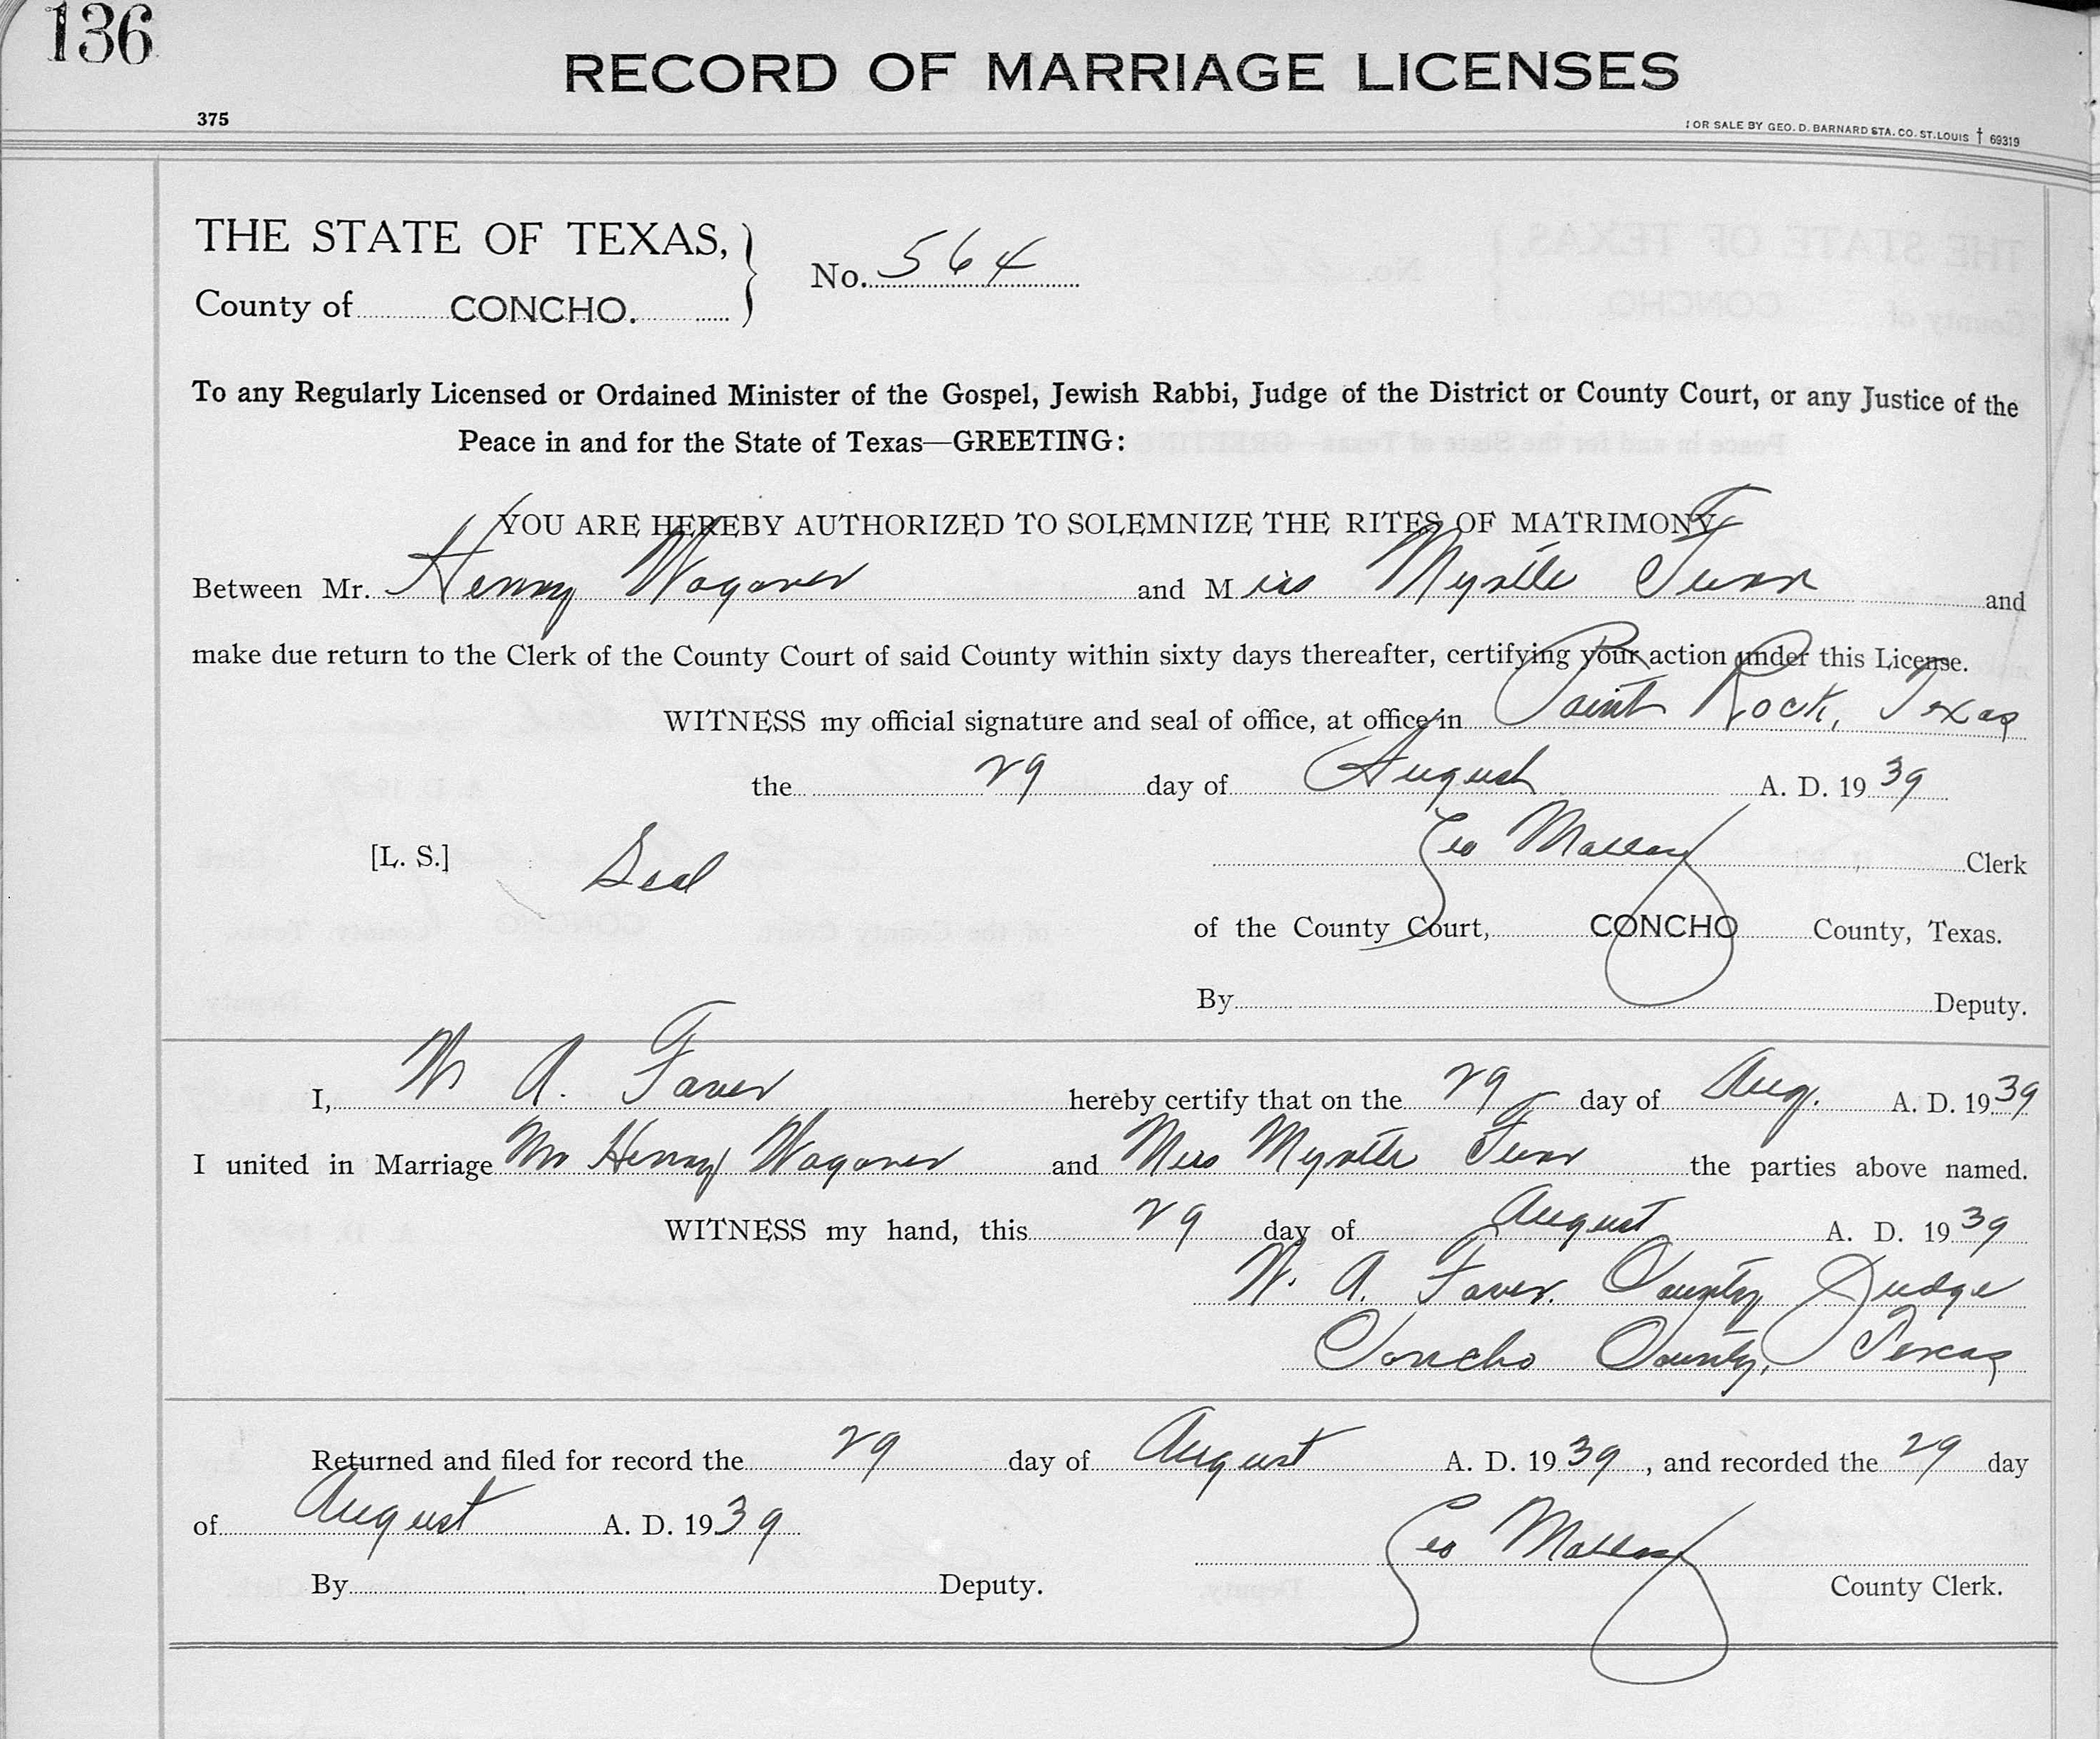 136
RECORD OF MARRIAGE LICENSES
375
FOR SALE BY GEO. D. BARNARD STA. CO. ST. LOUIS † 69319
THE STATE OF TEXAS,
County of CONCHO.
No. 564
To any Regularly Licensed or Ordained Minister of the Gospel, Jewish Rabbi, Judge of the District or County Court, or any Justice of the
Peace in and for the State of Texas—GREETING:
YOU ARE HEREBY AUTHORIZED TO SOLEMNIZE THE RITES OF MATRIMONY
Between Mr. Henry Wagoner and Miss Myrtle and
make due return to the Clerk of the County Court of said County within sixty days thereafter, certifying your action under this License.
WITNESS my official signature and seal of office, at office in Paint Rock, Texas
the 29 day of August A. D. 1939
[L. S.] Seal Geo Mallory Clerk
of the County Court, CONCHO County, Texas.
By Deputy.
I, W A. Faver hereby certify that on the 29 day of Aug. A. D. 1939
I united in Marriage Mr Henry Wagoner and Miss Myrtle the parties above named.
WITNESS my hand, this 29 day of August A. D. 1939
W. A. Faver. County Judge
Concho County, Texas
Returned and filed for record the 29 day of August A. D. 1939, and recorded the 29 day
of August A. D. 1939
Geo Mallory
By Deputy. County Clerk.